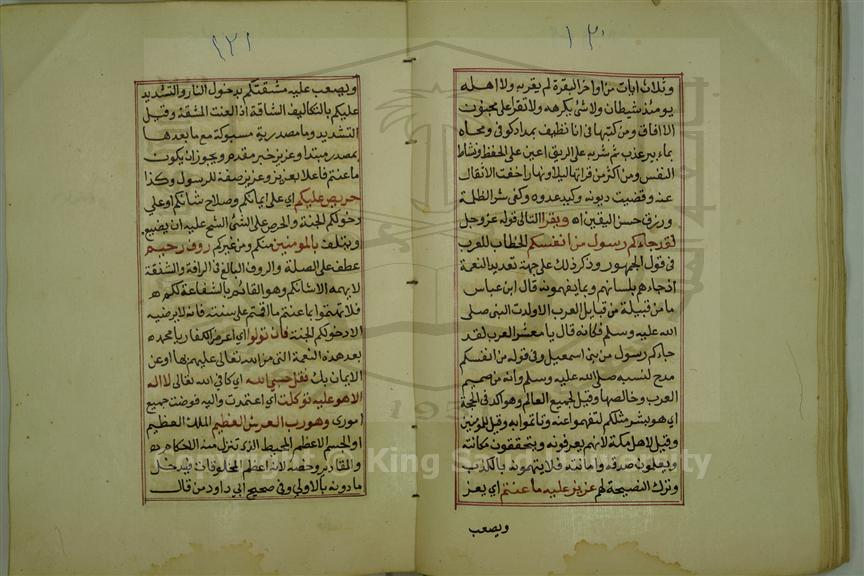 ١٣٠
وثلاث ايات من اواخر البقرة لم يقربه ولا اهله
يومئذ شيطان ولا شئ يكرهه ولا تقرا على مجنون
الا افاق ومن كتبها في انا نظيف بمداد كوفي ومحاه
بماء بير عذب ثم شربه على الريق اعين على الحفظ ونشاط
النفس ومن اكثر من قراتها ليلا ونهارا خفت الاثقال
عنه وقضيت ديونه وكيد عدوه وكفى شر الظلمة
ورزق حسن اليقين اه ويقرا التالي قوله عز وجل
لقد جاءكم رسول من انفسكم الخطاب للعرب
في قول الجمهور وذكر ذلك على جهة تعديد النعمة
اذ جاءهم بلسانهم وبما يفهمونه قال ابن عباس
ما من قبيلة من قبايل العرب الا ولدت النبي صلى
الله عليه وسلم فكانه قال يا معشر العرب لقد
جاءكم رسول من بني اسمعيل وفي قوله من انفسكم
مدح لنسبه صلى الله عليه وسلم وانه من صميم
العرب وخالصها وقيل لجميع العالم وهو اكد في الحجة
اي هو بشر مثلكم لتفهموا عنه وتاتموا به وقيل للمومنين
وقيل لاهل مكة لانهم يعرفونه ويتحققون مكانته
ويعلمون صدقه وامانته فلا يتهمونه بالكذب
وترك النصيحة لهم عزيز عليه ما عنتم اي يعز
ويصعب
١٣١
ويصعب عليه مشقتكم بدخول النار والتشديد
عليكم بالتكاليف الشاقة اذ العنت المشقة وقيل
التشديد وما مصدرية مسبوكة مع ما بعدها
بمصدر مبتدا وعزيز خبر مقدم ويجوز ان يكون
ما عنتم فاعلا بعزيز وعزيز صفة للرسول وكذا
حريص عليكم اي على ايمانكم وصلاح شانكم او على
دخولكم الجنة والحرص على الشئ الشح عليه ان يضيع
ويتلف بالمومنين منكم ومن غيركم روف رحيم
عطف على الصلة والروف البالغ في الرافة والشفقة
لا يهمه الا شانكم وهو القائم بالشفاعة لكم
فلا تهتموا بما عنتم ما اقمتم على سنته فانه لا يرضيه
الا دخولكم الجنة فان تولوا اي اعرض الكفار يا محمد
بعد هذه النعمة التي من الله تعالى عليهم بها او عن
الايمان بك فقل حسبي الله اي كافي الله تعالى لا اله
الا هو عليه توكلت اي اعتمدت واليه فوضت جميع
اموري وهو رب العرش العظيم الملك العظيم
او الجسم الاعظم المحيط الذي تنزل منه الاحكام
والمقادير وخصه لانه اعظم المخلوقات فيدخل
ما دونه بالاولى وفي صحيح ابي داود من قال
King Saud University